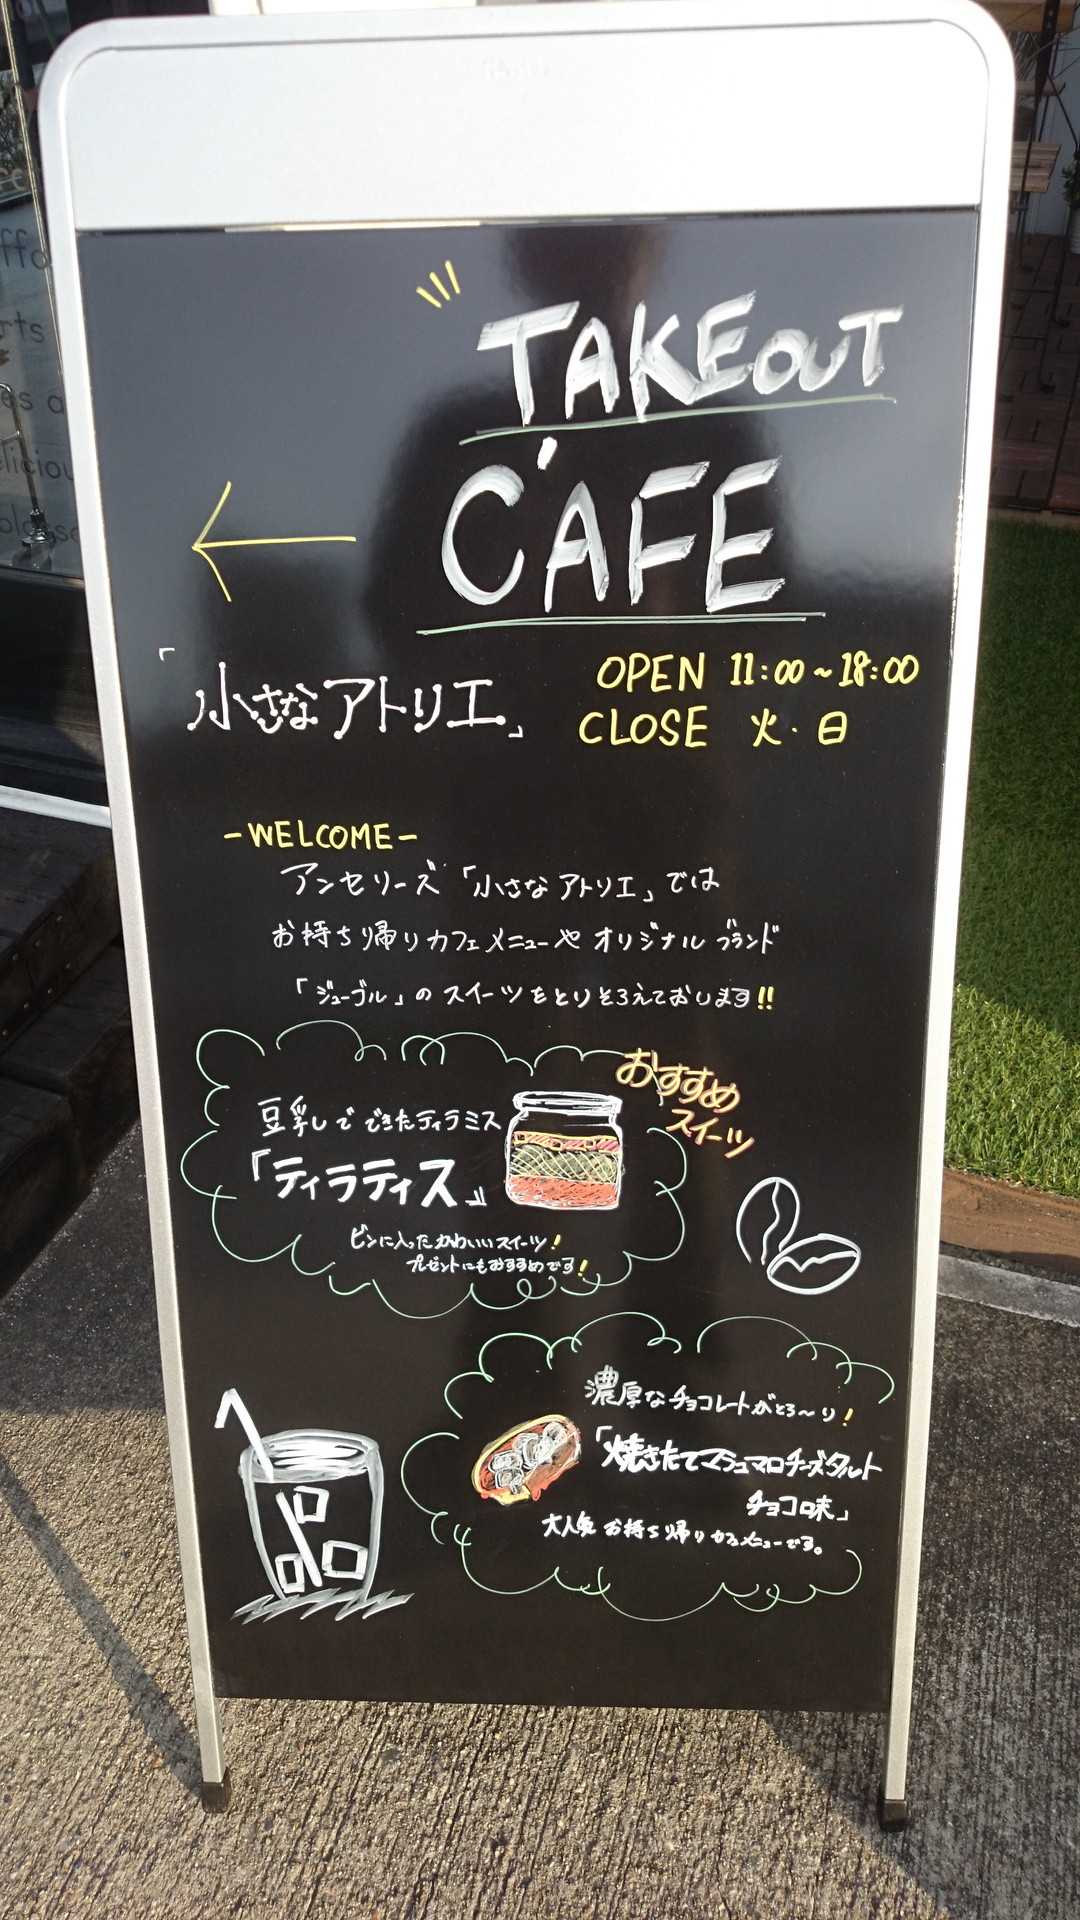 TAKEOUT
CAFE
「小さなアトリエ」
OPEN 11:00~18:00
CLOSE 火・日
-WELCOME-
アンセリーズ「小さなアトリエ」では
お持ち帰りカフェメニューや オリジナルブランド
「ジューゴル」の スイーツをとりそろえております!!
おすすめ
スイーツ
豆乳でできたティラミス
「ティラティス」
ビンに入ったかわいいスイーツ!
プレゼントにもおすすめです!
濃厚なチョコレートがとろ〜り!
「焼きたてマシュマロチーズタルト
チョコ味」
大人気 お持ち帰りカフェメニューです。